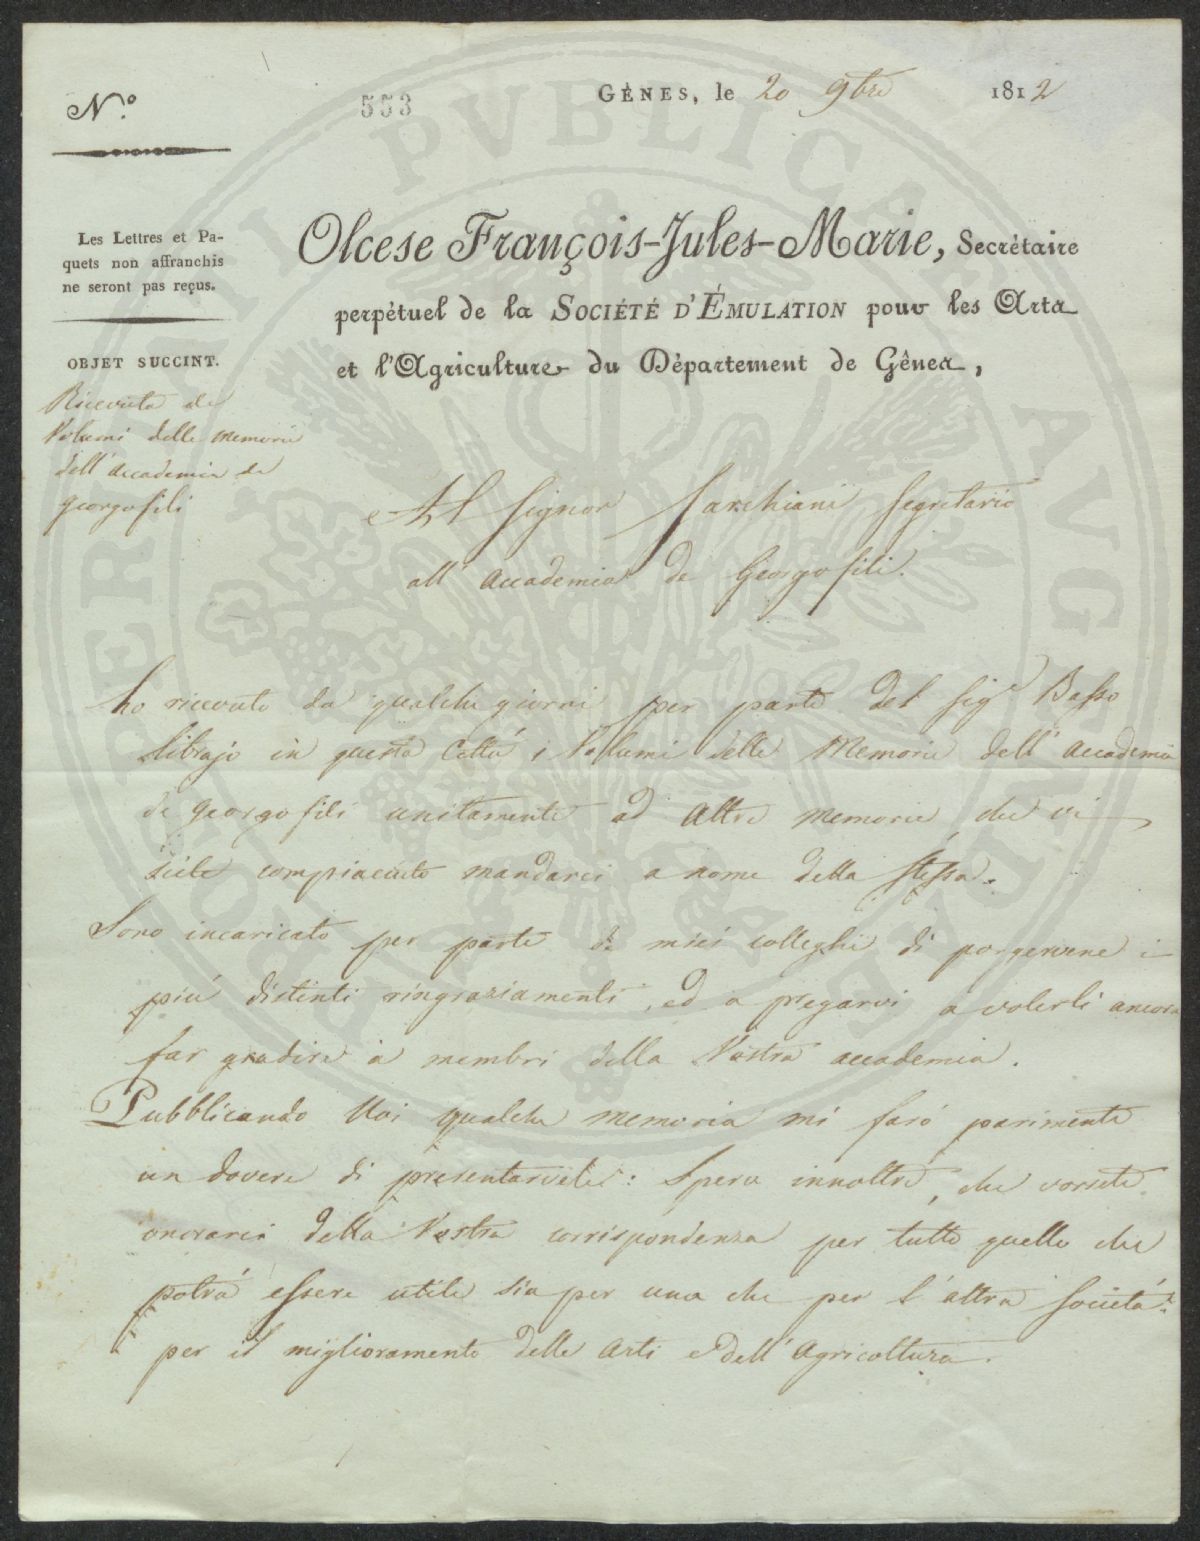 N.º
553
GÊNES, le 20 9bre 1812
Les Lettres et Pa-
quets non affranchis
ne seront pas reçus.
OBJET SUCCINT.
Ricevuta de
Volumi delle memorie
dell'accademia de
georgofili
Olcese François-Jules-Marie, Secrétaire
perpétuel de la SOCIÉTÉ D'ÉMULATION pour les Arts
et l'Agriculture du Département de Gênes,
Al Signor Sarchiani Segretario
all'accademia de Georgofili.
ho ricevuto da qualche giorni per parte del Sigr Basso
librajo in questa Città i Volumi delle Memorie dell'accademia
de georgofili unitamente ad altre memorie, che vi
siete compiaciuto mandarci a nome della stessa.
Sono incaricato per parte de miei colleghi di porgervene i
più distinti ringraziamenti, ed a pregarvi a volerli ancora
far gradire a membri della Vostra accademia.
Pubblicando Noi qualche memoria mi farò parimente
un dovere di presentarvele: Spero innoltre, che vorrete
onorarci della Vostra corrispondenza per tutto quello che
potrà essere utile sia per una che per l'altra società
per il miglioramento delle arti e dell'agricoltura.
PUBLICAE